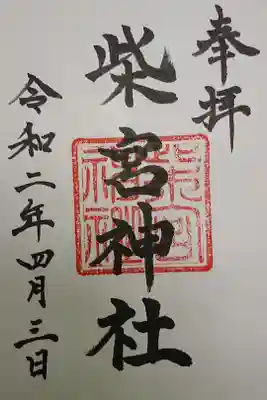 奉拝
柴宮神社
令和二年四月三日